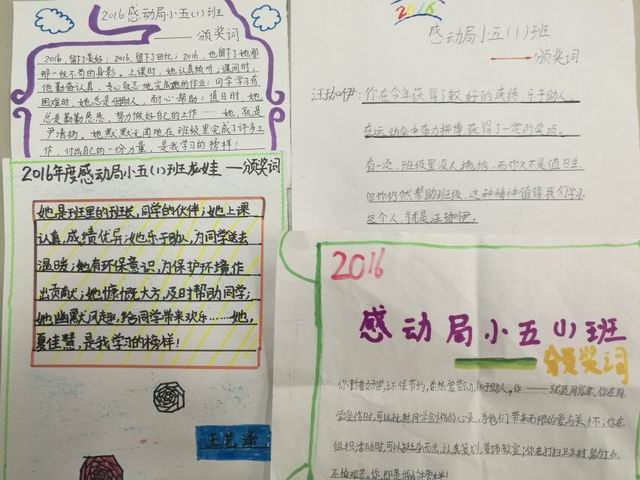 2016感动局小五(1)班
——颁奖词
2016,留下美好;2016,留下回忆;2016,也留下她那
那一丝不苟的身影。上课时,她认真倾听,课间时,
他勤奋认真,专心致志地完成她的作业;同学学习有
困难时,她总是伸出援手,耐心帮助;值日时,她
总是勤勤恳恳,努力做好自己的工作……她,就是
尹清扬,她默默无闻地在班级里完成了许多工
作,付出自己的一份力量,是我学习的榜样!
2016
感动局小五(1)班
——颁奖词
汪珈伊:你在今年获得了较好的成绩,乐于助人,
在运动会中奋力拼搏获得了一定的奖项。
有一次,班级里没人拖地,而你又不是值日生,
但你仍然帮助班级,这种精神值得我们学习
这个人,就是汪珈伊。
2016年度感动局小五(1)班龙娃——颁奖词
她是班里的班长,同学的伙伴;她上课
认真,成绩优异;她乐于助人,为同学送去
温暖;她有环保意识,为保护环境作
出贡献;她慷慨大方,及时帮助同学;
她幽默风趣,给同学带来欢乐……她,
夏佳慧,是我学习的榜样!
2016
感动局小五(1)班
颁奖词
你勤奋好学,环保节约,自然爱劳动,乐于助人。你——就是,你在同
学受伤时,可以抚慰同学的心灵,为他们带来无限的爱与关怀;你在
组织活动时,可以挺身而出,认真策划,装饰教室;你在打扫卫生时,努力工作,
不怕艰苦。你,即是